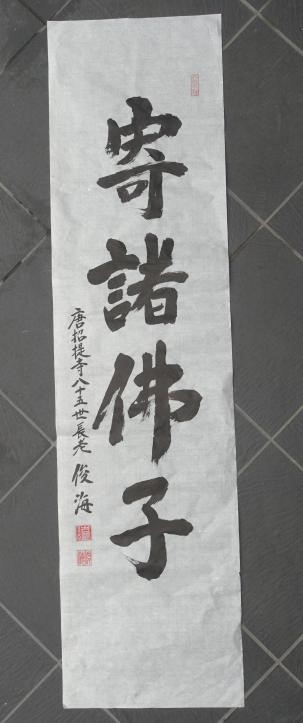 寄諸佛子
唐招提寺八十五世長老 俊海